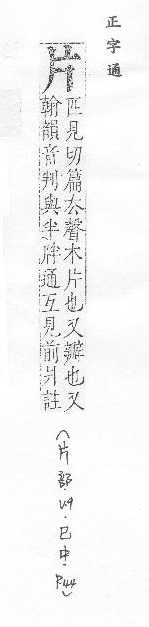 正字通
片
匹見切篇厺聲木片也又瓣也又
翰韻音判與半牉通互見前爿註
(片部··巳中·P44)